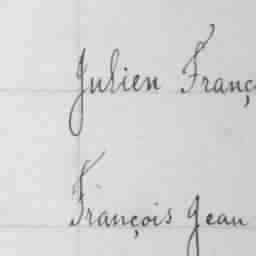 Julien Franç
François Jean